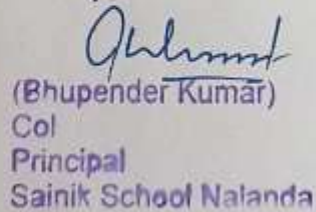 (Bhupender Kumar)
Col
Principal
Sainik School Nalanda